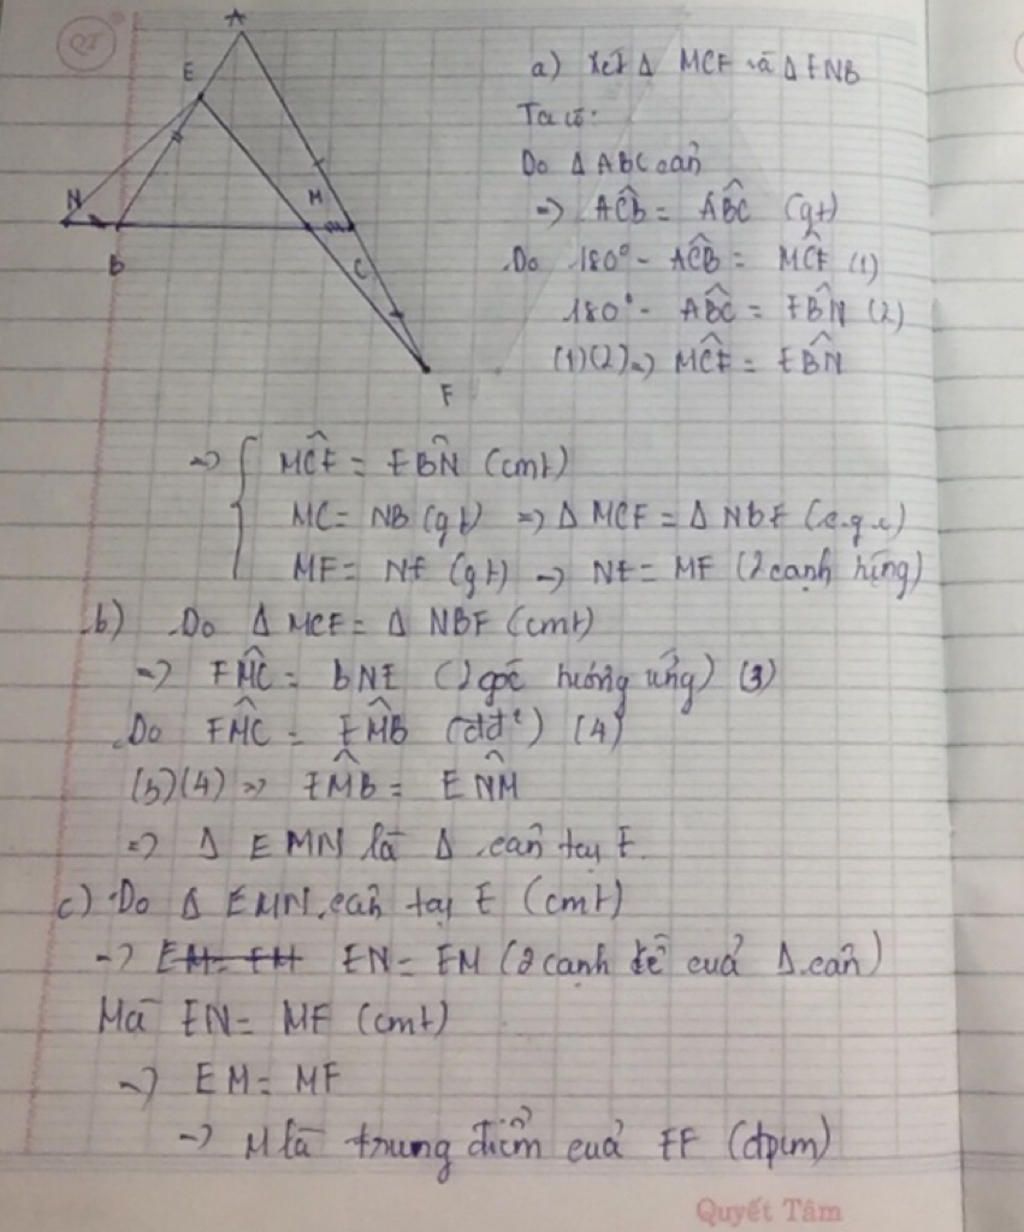 A
E
N
M
B
C
F
a) Xét Δ MCF và Δ ENB
Ta có:
Do Δ ABC cân
=> ACB = ABC (gt)
Do 180° - ACB = MCF (1)
180° - ABC = EBN (2)
(1)(2) => MCF = EBN
=> { MCF = EBN (cmt)
MC = NB (gt) => Δ MCF = Δ NBE (c.g.c)
MF = NE (gt) => NE = MF (2 cạnh tứng)
b) Do Δ MCF = Δ NBF (cmt)
=> FMC = BNE (2 góc tướng ứng) (3)
Do FMC = EMB (đđ) (4)
(3)(4) => EMB = ENM
=> Δ EMN là Δ cân tại E.
c) Do Δ EMN cân tại E (cmt)
=> EN = EM (2 cạnh kề cuả Δ cân)
Mà EN = MF (cmt)
=> EM = MF
=> M là trung điểm cuả EF (đpcm)
Quyết Tâm